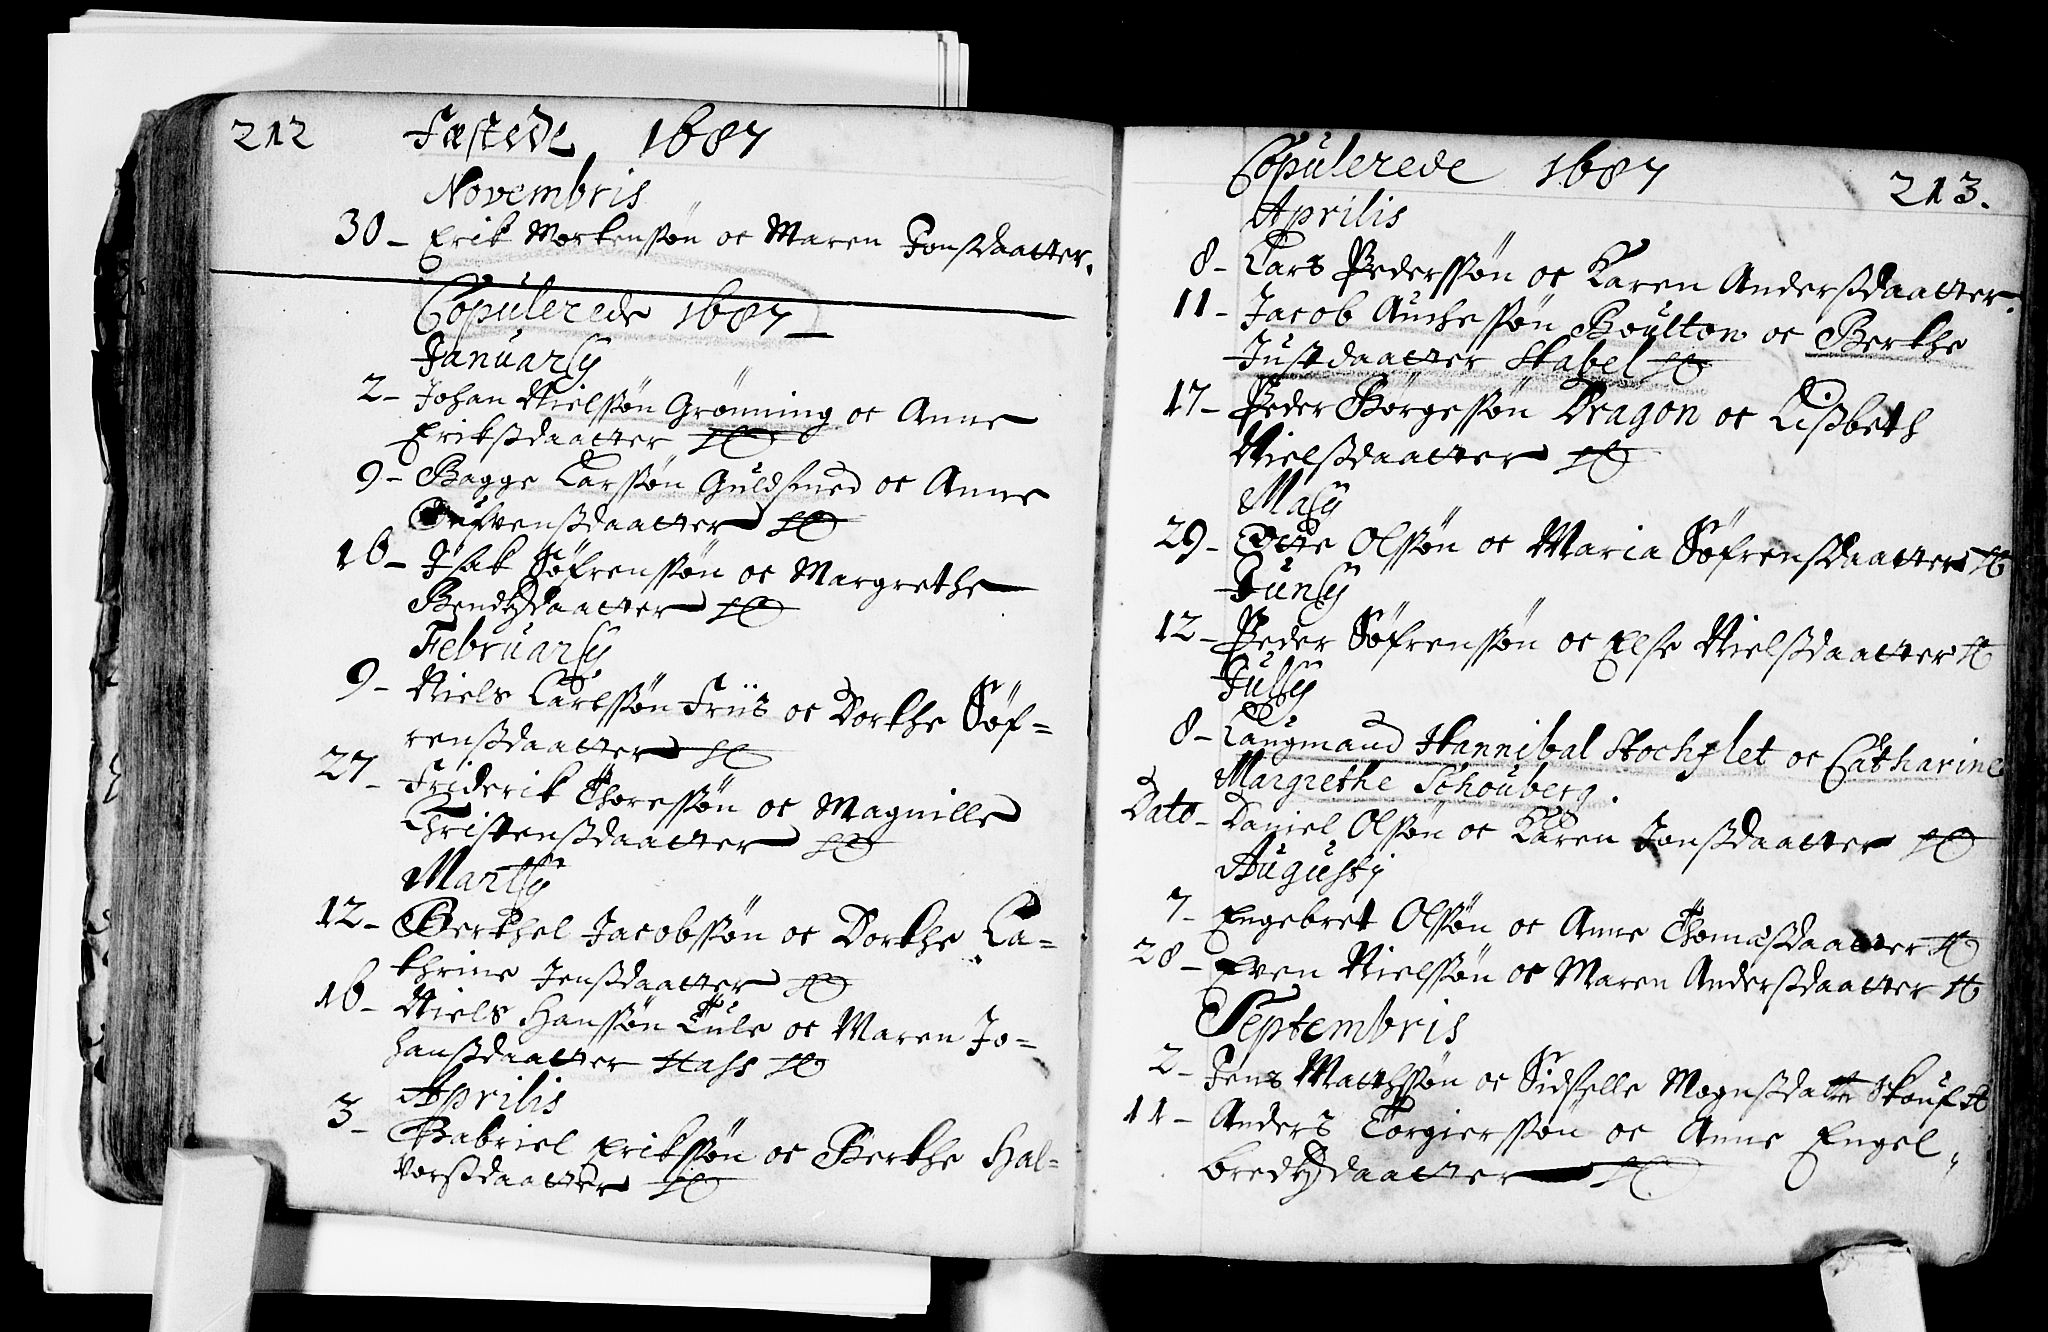 212 Fæstede 1687
Novembris
30 – Erik Morkenssøn oc Maren Jonsdaatter.
Copulerede 1687
Januarij
2 – Johan Nielssøn Grønning oc Anne
Eriksdaatter
9 – Bagge Larssøn Guldsmed oc Anne
16 – Isak Søfrenssøn oc Margrethe
Bendtzdaatter
Februarij
9 – Niels Carlssøn Friis oc Dorthe Søf=
rensdaatter
27 – Friderik Thoressøn oc Magnille
Christensdaatter
Martij
12 – Berthel Jacobssøn oc Dorthe Ca=
thrine Jensdaatter
16 – Niels Hanssøn Tule oc Maren Jo=
hansdaatter Hass
Aprilis
3 – Gabriel Erikssøn oc Berthe Hal=
vorsdaatter
Copulerede 1687 213.
Aprilis
8 – Lars Pederssøn oc Karen Andersdaatter.
11 – Jacob Boulton oc Berthe
Justdaatter Stabel
17 – Peder Børgessøn Dragon oc Lisbeth
Nielsdaatter
Maij
29 – Otte Olssøn oc Maria Søfrensdaatter
Junij
12 – Peder Søfrenssøn oc Else Nielsdaatter
Julij
8 – Laugmand Hannibal Stochflet oc Catharine
Margrethe Schouberg.
Dato – Daniel Olssøn oc Karen Jonsdaatter
Augustj
7 – Engebret Olssøn oc Anne Thomasdaatter
28 – Even Nielssøn oc Maren Andersdaatter
Septembris
2 – Jens Matthssøn oc Sidselle Mognsdatter Skouf
11 – Anders Torgierssøn oc Anne Engel„
bredtzdaatter